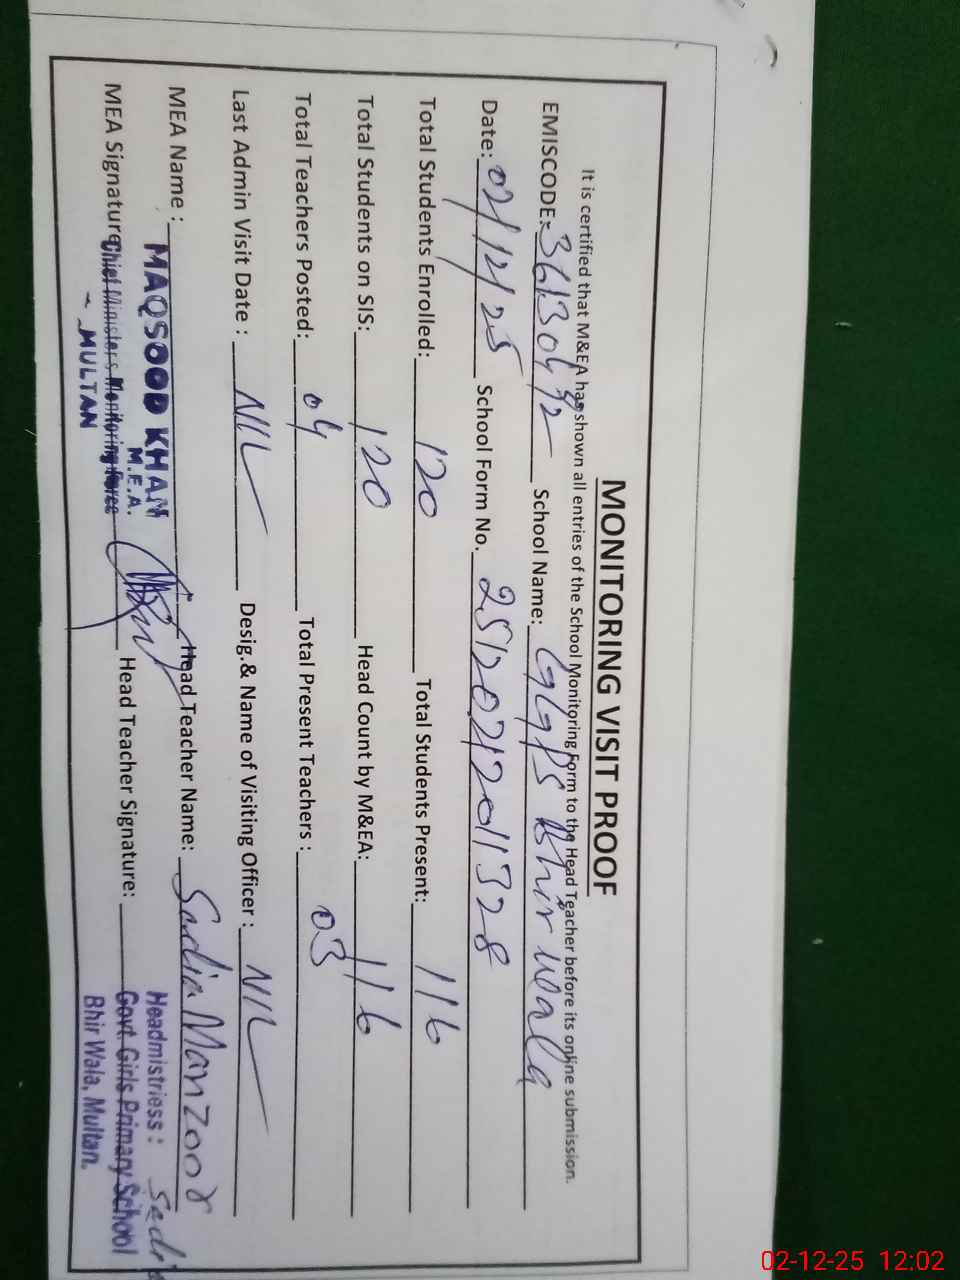 MONITORING VISIT PROOF
It is certified that M&EA has shown all entries of the School Monitoring Form to the Head Teacher before its online submission.
EMISCODE: School Name: GGPS Bhir wala
Date: 02/12/25 School Form No. 251202/2011328
Total Students Enrolled: 120 Total Students Present: 116
Total Students on SIS: 120 Head Count by M&EA: 116
Total Teachers Posted: 04 Total Present Teachers : 03
Last Admin Visit Date : NIL Desig.& Name of Visiting Officer : NIL
MEA Name : MAQSOOD KHAN Head Teacher Name: Sadia Manzoor
M.E.A. Headmistriess :
MEA Signature Chief Ministers Monitoring Force Head Teacher Signature: Govt. Girls Primary School
MULTAN Bhir Wala, Multan.
02-12-25 12:02